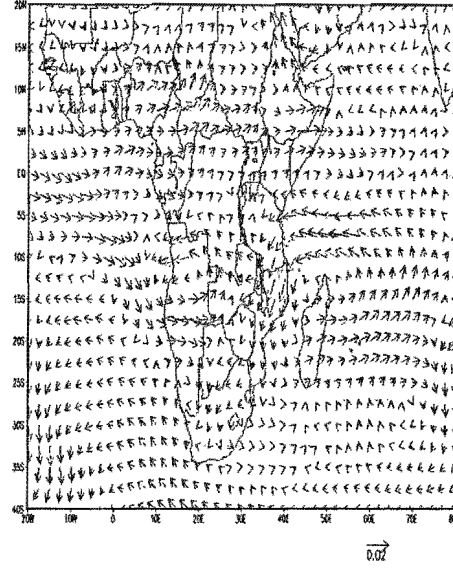 20N
15N
10N
5N
EQ
5S
10S
15S
20S
25S
30S
35S
40S
20W 10W 0 10E 20E 30E 40E 50E 60E 70E 80
0.02